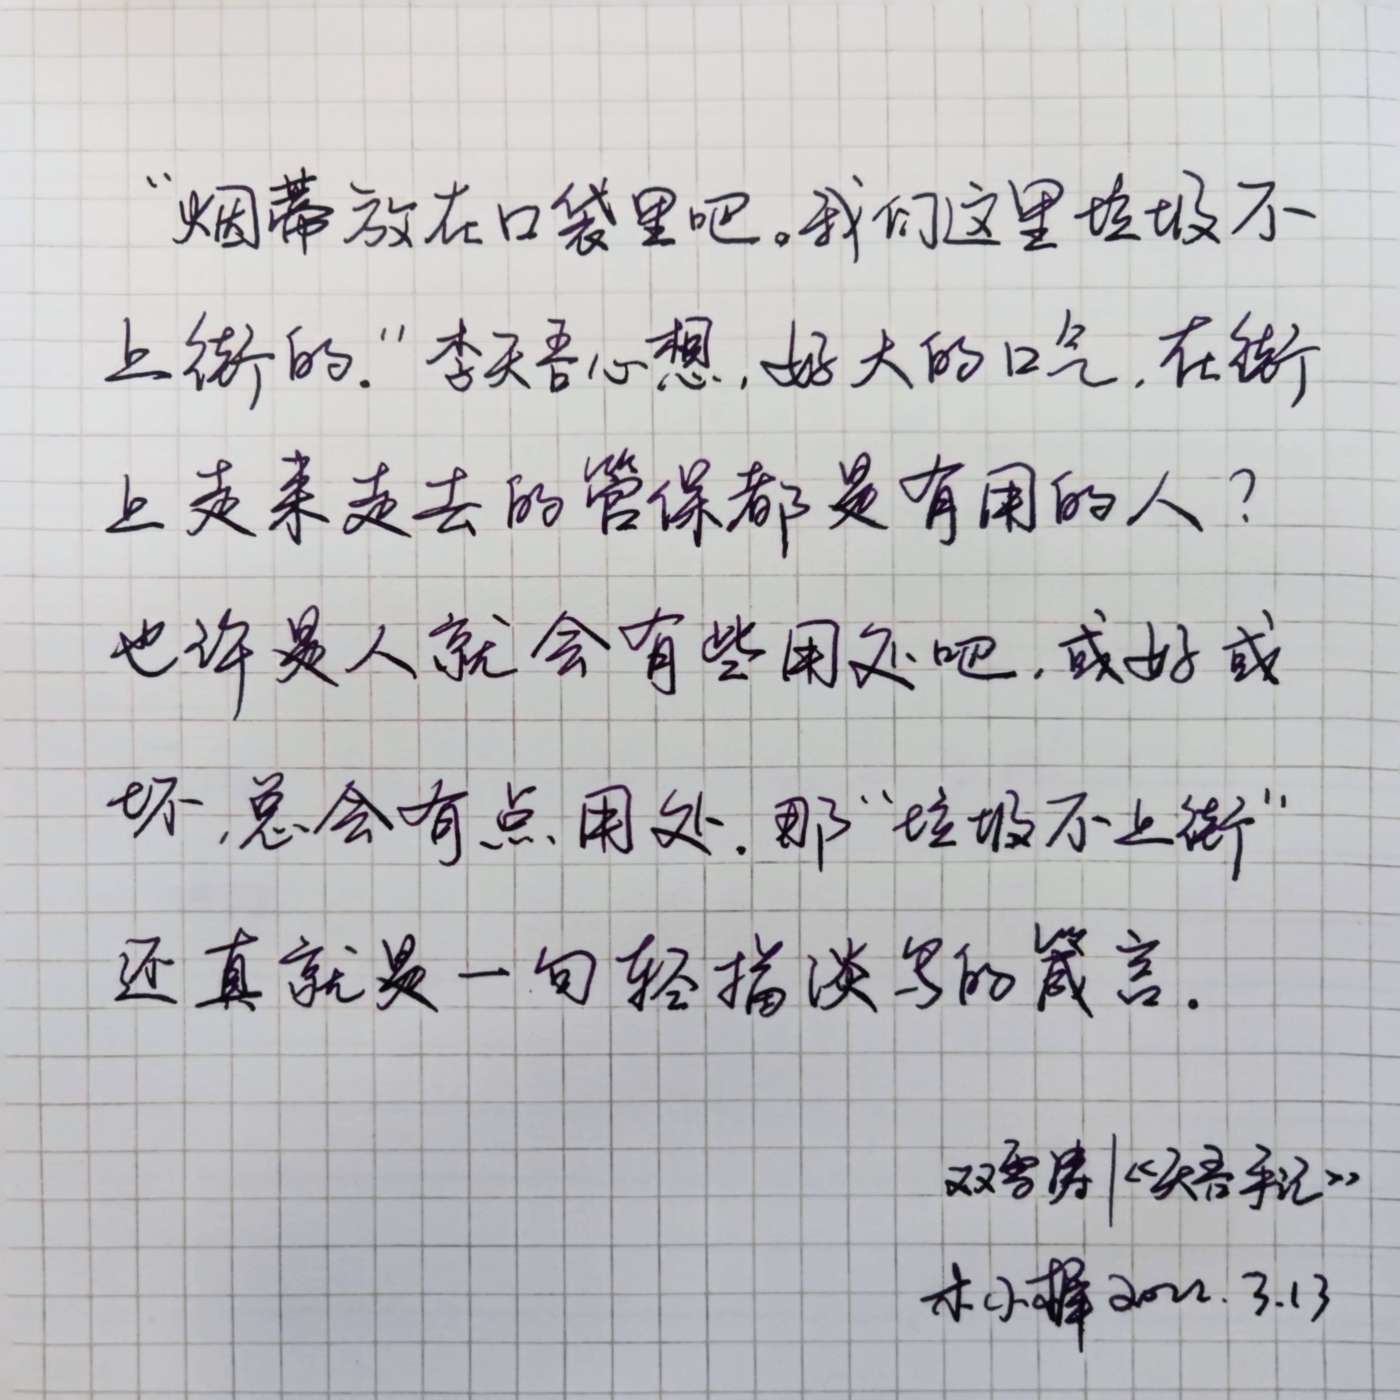 “烟蒂放在口袋里吧。我们这里垃圾不
上街的.”李天吾心想,好大的口气,在街
上走来走去的管保都是有用的人?
也许是人就会有些用处吧,或好或
坏,总会有点用处.那“垃圾不上街”
还真就是一句轻描淡写的箴言.
双雪涛|《天吾手记》
木小择 2022.3.13